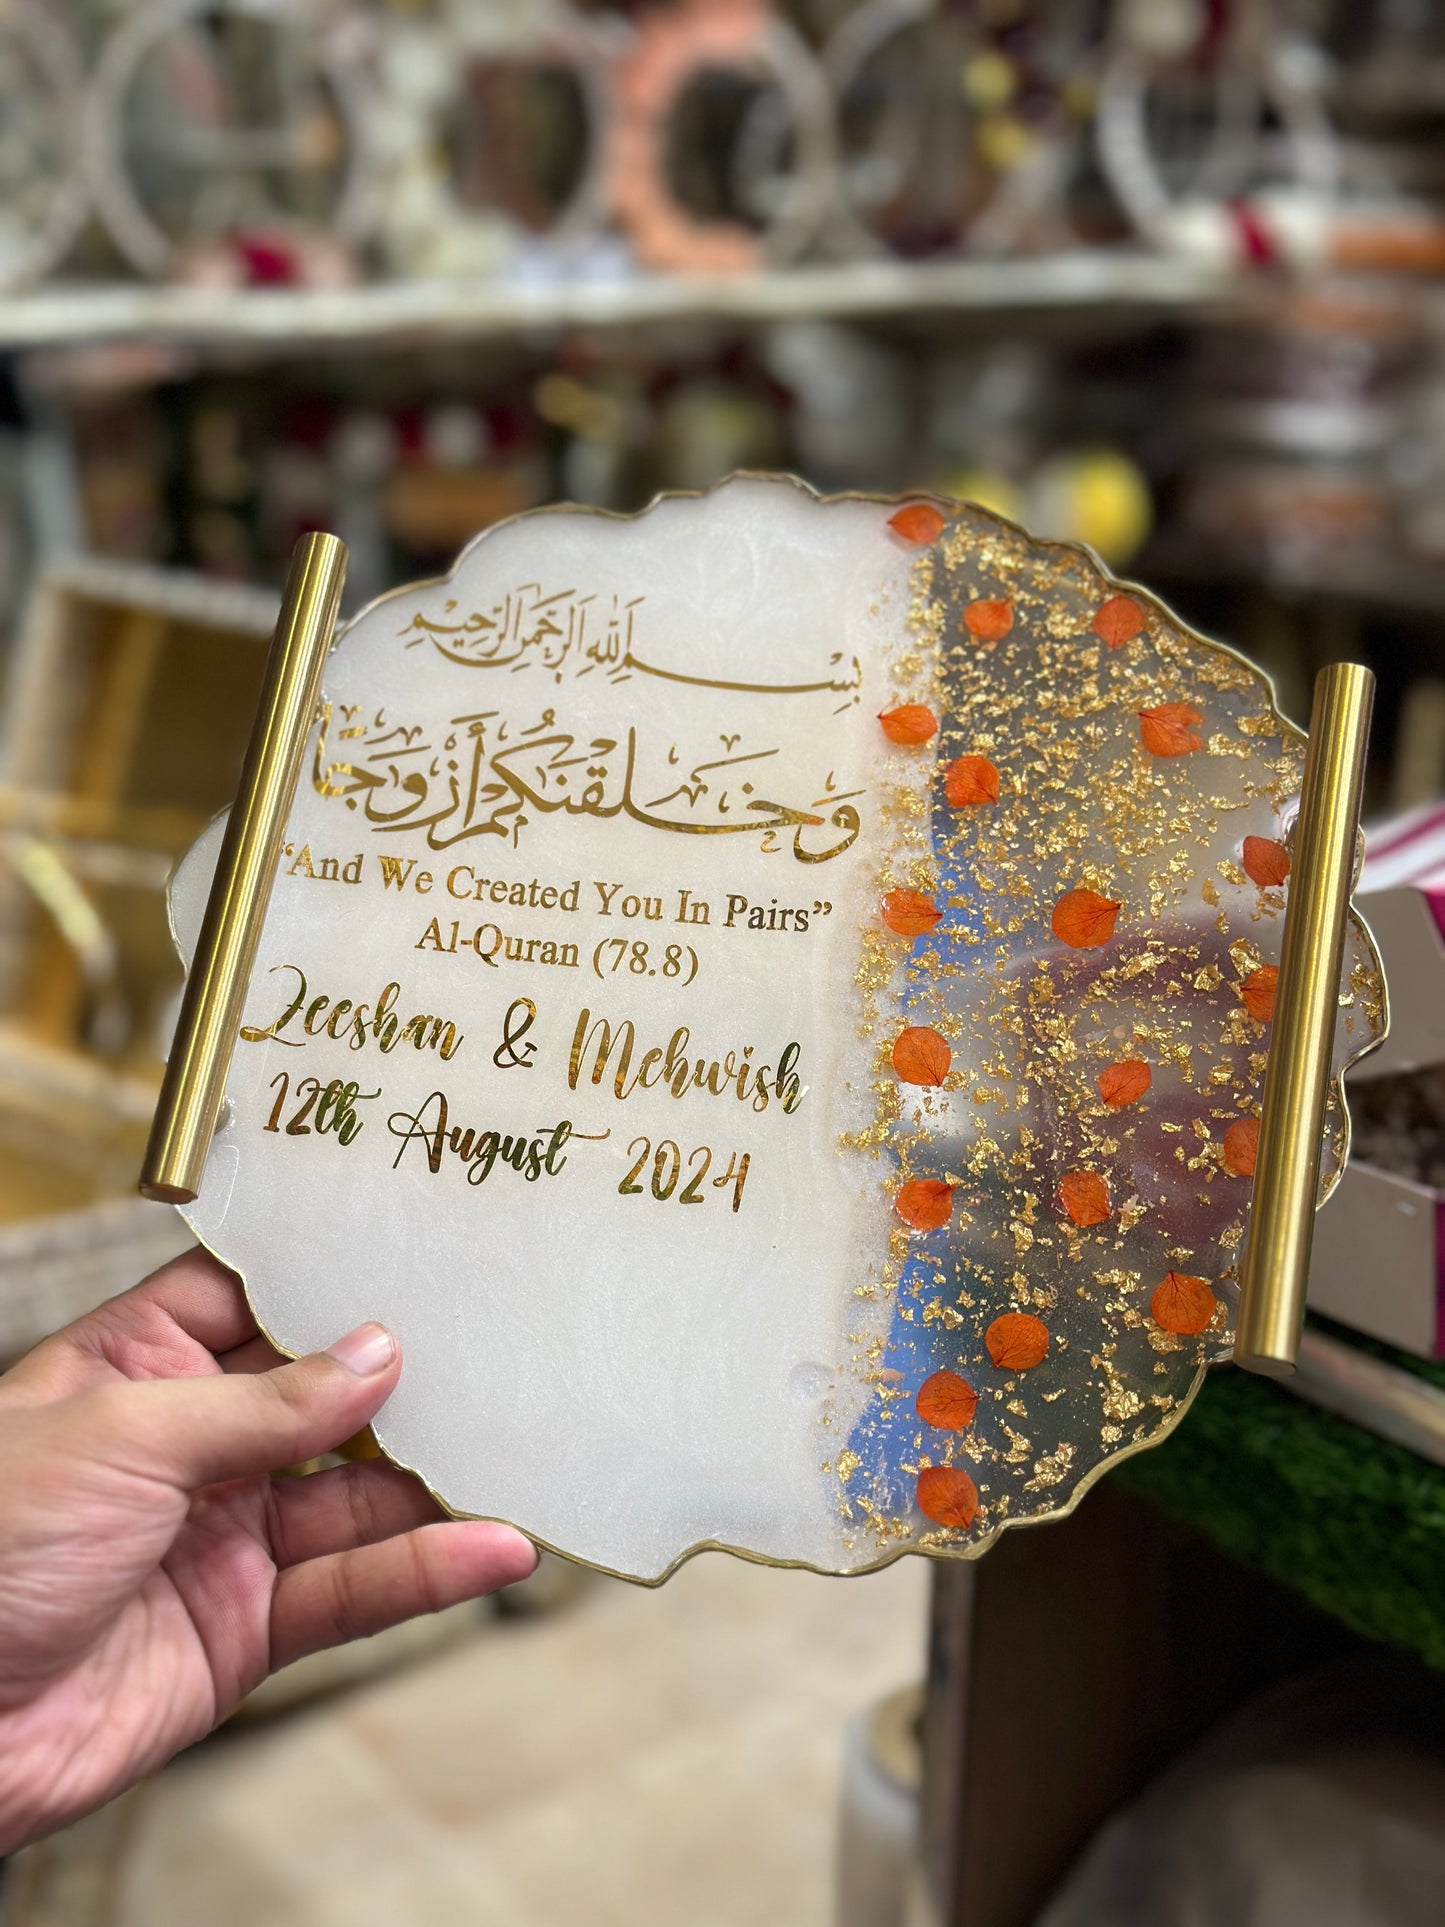 بِسْمِ اللهِ الرَّحْمٰنِ الرَّحِيْمِ
وَخَلَقْنَكُمْ أَزْوَجًا
“And We Created You In Pairs”
Al-Quran (78.8)
Zeeshan & Mehwish
12th August 2024